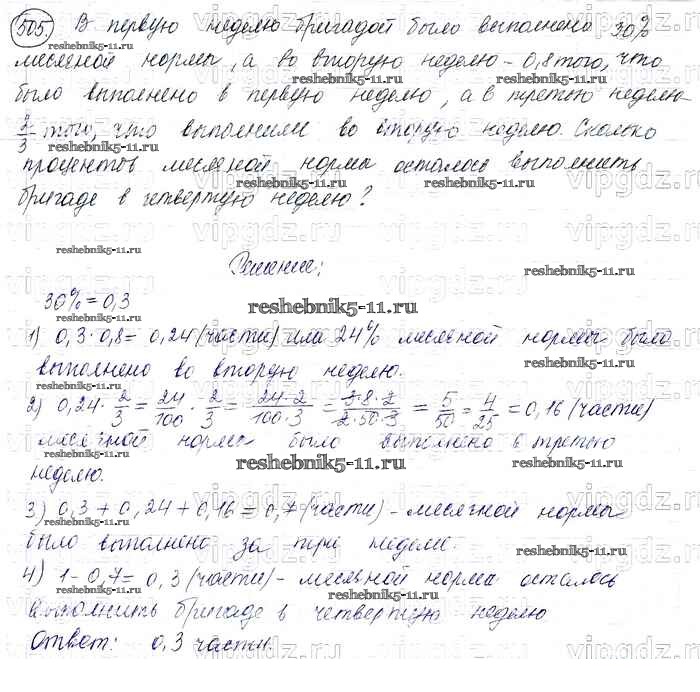 505. В первую неделю бригадой было выполнено 30%
месячной нормы, а во вторую неделю - 0,8 того, что
было выполнено в первую неделю, а в третью неделю -
2/3 того, что выполнили во вторую неделю. Сколько
процентов месячной нормы осталось выполнить
бригаде в четвертую неделю?
Решение:
30% = 0,3
1) 0,3 · 0,8 = 0,24 (части) или 24% месячной нормы было
выполнено во вторую неделю.
2) 0,24 · 2/3 = 24/100 · 2/3 = 24·2/100·3 = = 4/25 = 0,16 (части)
месячной нормы было выполнено в третью
неделю.
3) 0,3 + 0,24 + 0,16 = 0,7 (части) - месячной нормы
было выполнено за три недели.
4) 1 - 0,7 = 0,3 (части) - месячной нормы осталось
выполнить бригаде в четвертую неделю
Ответ: 0,3 части.
reshebnik5-11.ru
vipgdz.ru